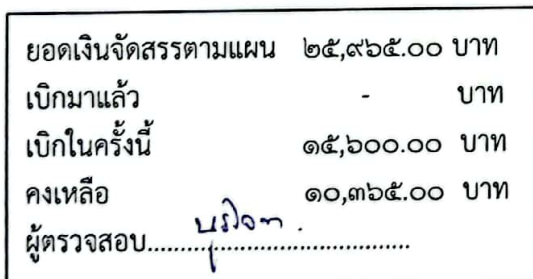 ยอดเงินจัดสรรตามแผน ๒๕,๙๖๕.๐๐ บาท
เบิกมาแล้ว - บาท
เบิกในครั้งนี้ ๑๕,๖๐๐.๐๐ บาท
คงเหลือ ๑๐,๓๖๕.๐๐ บาท
ผู้ตรวจสอบ........................................